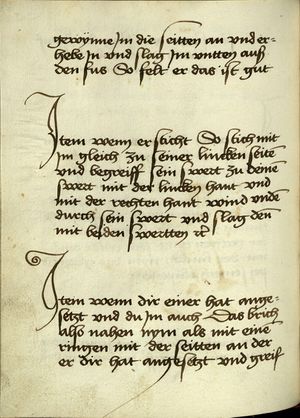 gewynne Im die seitten an vnd er-
hebe In vnd slag Im vntten auß
den fus So felt er das ist gut
Item wenn er sticht So stich mit
Im gleich zu seiner lincken seiten
vnd begreiff sein swert zu deinem
swert mit der lincken hant vnd
mit der rechten hant wind vnden
durch sein swert vnd slag den
mit beiden swertten etc
Item wenn dir einer hat ange-
setzt vnd du im auch Das brich
also nahen nym als mit eine
ringen mit der seitten an der
er dir hat angesetzt vnd greif